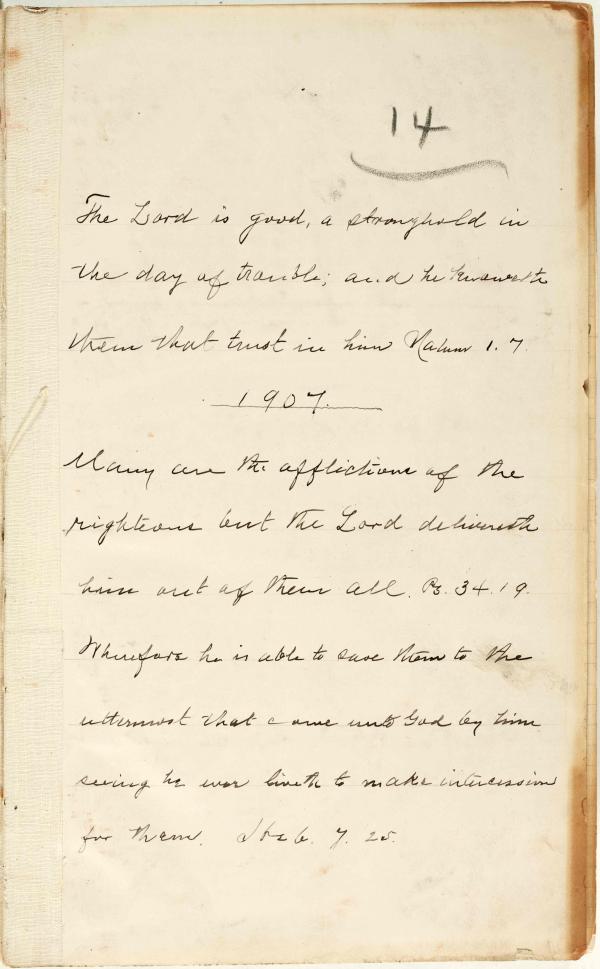 14
The Lord is good, a stronghold in
the day of trouble; and he knoweth
them that trust in him Nahum 1.7.
1907.
Many are the afflictions of the
righteous but the Lord delivereth
him out of them all. Ps. 34.19.
Wherefore he is able to save them to the
uttermost that come unto God by him
seeing he ever liveth to make intercession
for them. Heb. 7. 25.